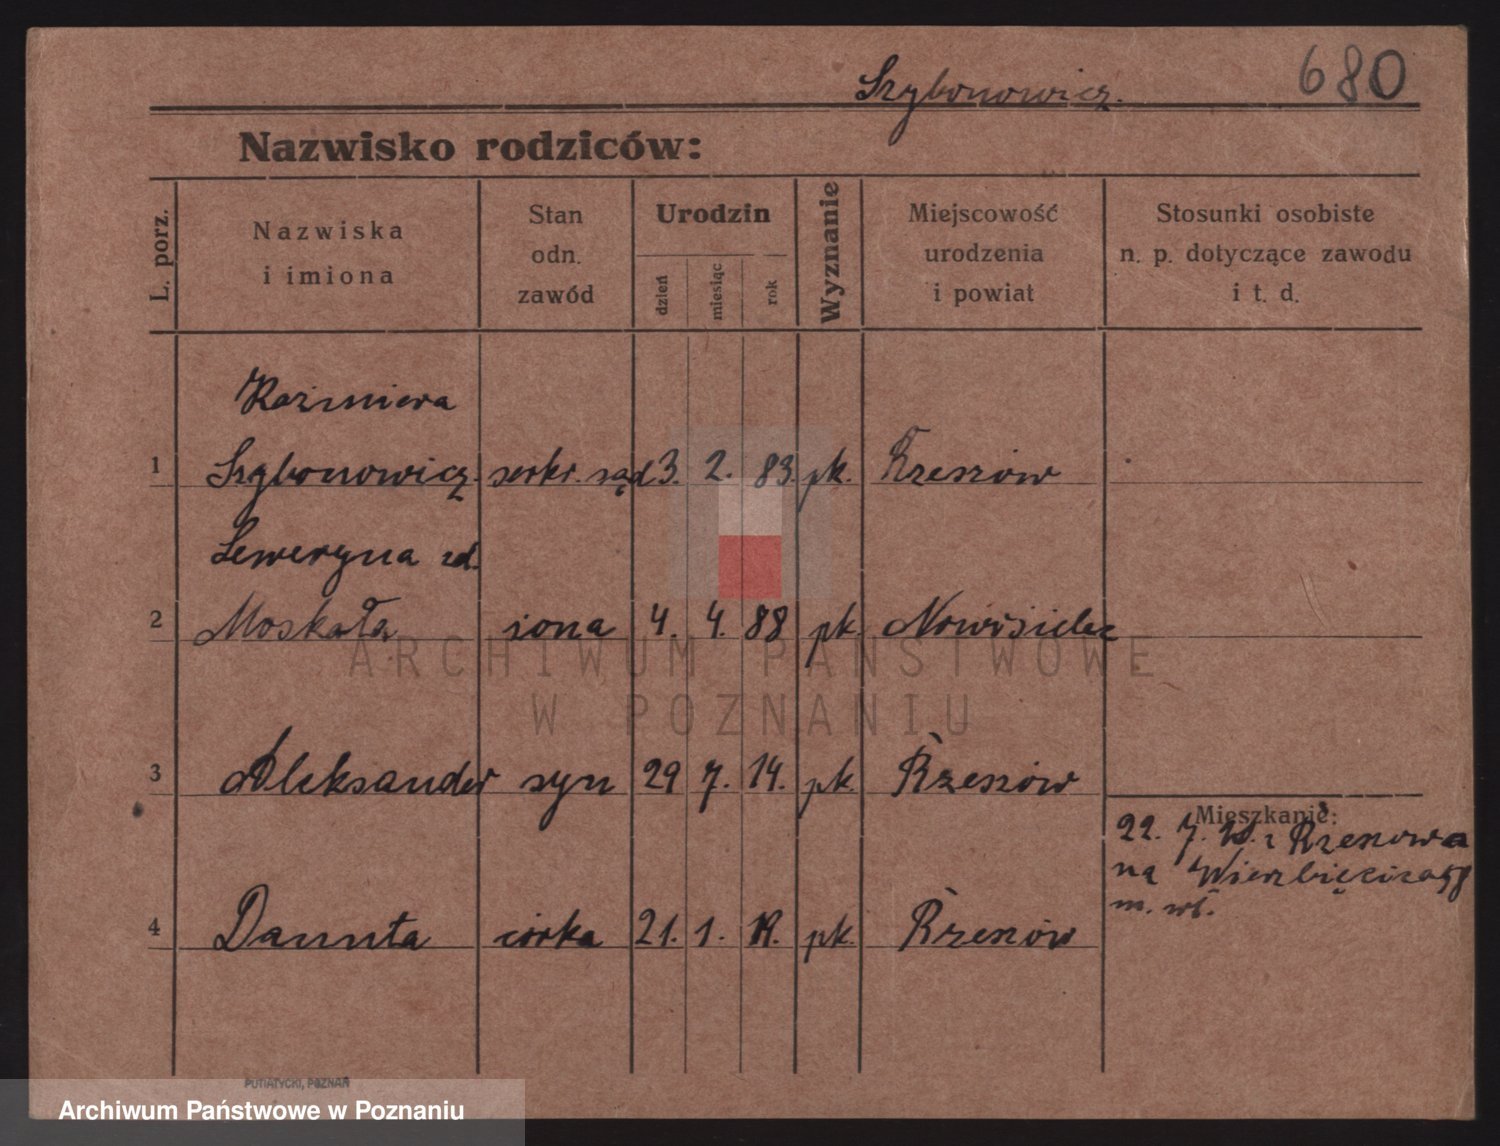 680
Szybonowicz.
Nazwisko rodziców:
L. porz.
Nazwiska
i imiona
Stan
odn.
zawód
Urodzin
dzień
miesiąc
rok
Wyznanie
Miejscowość
urodzenia
i powiat
Stosunki osobiste
n. p. dotyczące zawodu
i t. d.
Kazimiera
1 Szybonowicz sekr. sąd 3. 2. 83. pk. Rzeszów
Seweryna zd.
2 Moskała żona 4. 4. 88 pk. Nowosielec
3 Aleksander syn 29 7. 14. pk. Rzeszów
Mieszkanie:
22. 7. z Rzeszowa
na Wierzbięcice 58
m. wł.
4 Danuta córka 21. 1. pk. Rzeszów
ARCHIWUM PAŃSTWOWE
W POZNANIU
PUTIATYCKI, POZNAŃ
Archiwum Państwowe w Poznaniu